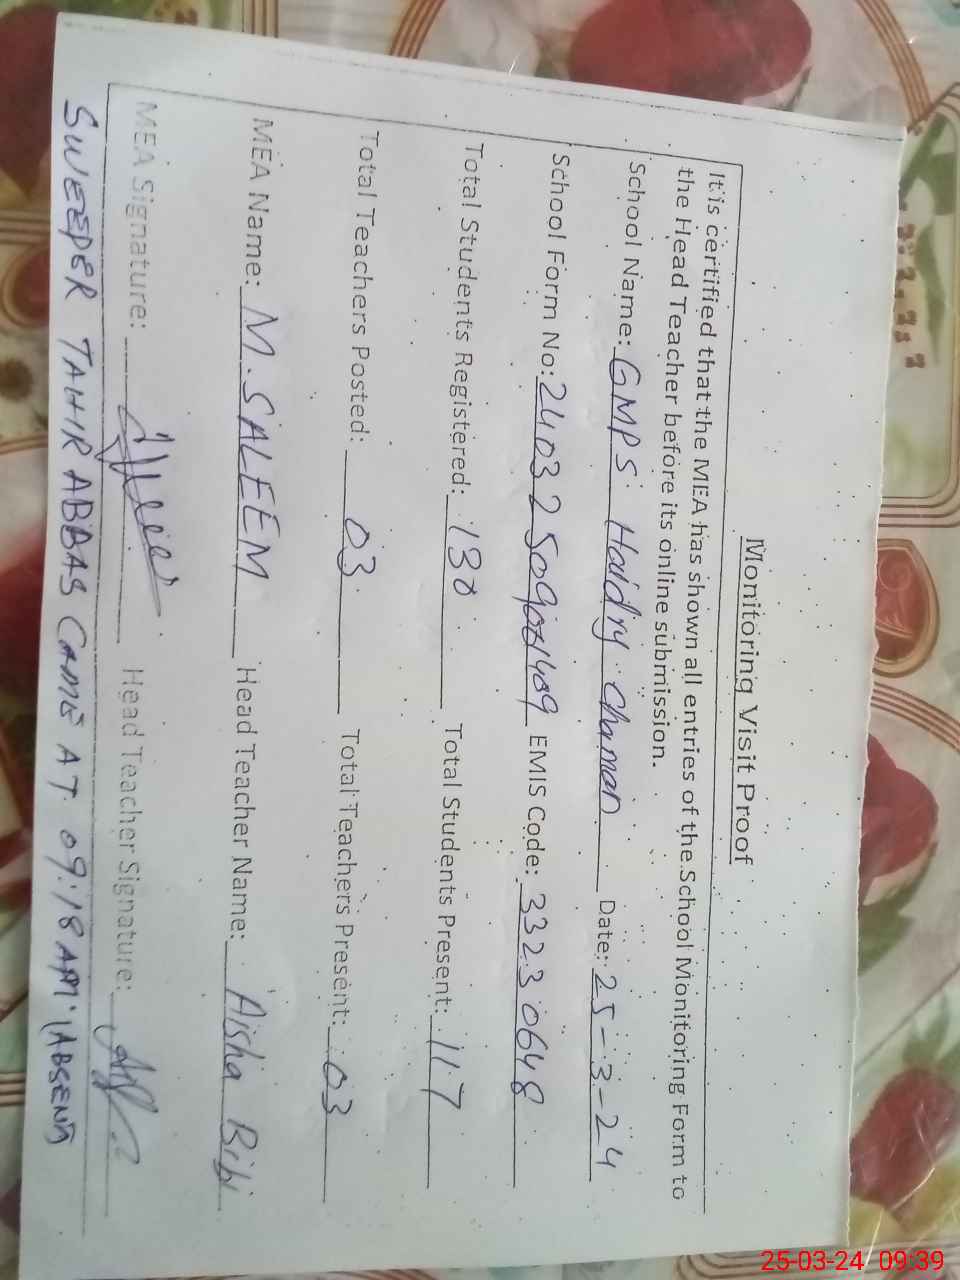 Monitoring Visit Proof
It is certified that the MEA has shown all entries of the School Monitoring Form to
the Head Teacher before its online submission.
School Name: GMPS Haidry Chaman Date: 25-3-24
School Form No: EMIS Code: 33230648
Total Students Registered: 130 Total Students Present: 117
Total Teachers Posted: 03 Total Teachers Present: 03
MEA Name: M. SALEEM Head Teacher Name: Aisha Bibi
MEA Signature: Head Teacher Signature:
SWEEPER TAHIR ABBAS CAME AT 09:18 AM (ABSENT)
25-03-24 09:39